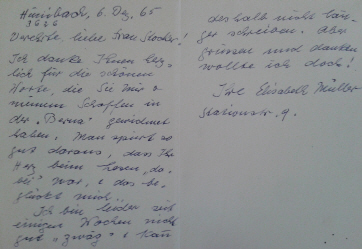 Hünibach, 6. Dez. 65
3626
Verehrte liebe Frau Stocker!
Ich danke Ihnen herz-
lich für die schönen
Worte, die Sie mir &
meinem Schaffen in
der „Berna" gewidmet
haben. Man spürt so
gut daraus, dass Ihr
Herz beim Lesen „da-
bei" war, & das be-
glückt mich.
Ich bin leider seit
einigen Wochen nicht
gut „zwäg" & kann
deshalb nicht län-
ger schreiben. Aber
grüssen und danken
wollte ich doch!
Ihre Elisabeth Müller
Stationsstr. 9.